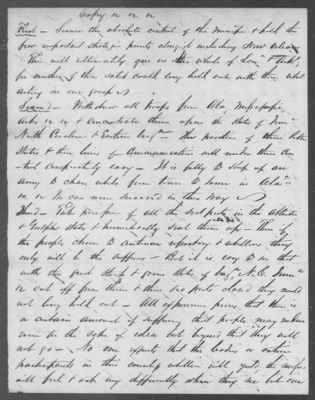 Copy
First – Secure the absolute control of the Missipi & hold the
few important strategic points along it including New Orleans
This will ultimately give us the whole of &
for neither of these States could long hold out with their vital
in our
Second – Withdraw all troops from Ala Mississippi
Arks & concentrate them upon the State of Tenn
North Carolina & Eastern The position of these latter
States & their lines of communication will render their
comparatively easy – It is folly to keep up an
army to chase rebels from town to town in Ala
We can never succeed in this way
Third – Take possession of all the sea ports in the Atlantic
& Gulf States & hermetically seal them up – Then if
the people choose to continue & they
only will be the sufferers – But it is easy to see that
with the great and grain States of N.C. Tenn
cut off from them & their sea ports closed they could
not long hold out – All experience proves that there is
a certain amount of suffering that people may endure
even for the sake of idea but beyond that they will
not go – No one expects that the leaders or active
participants in this conspiracy will yield, the masses
will feel & act very differently when they see but one